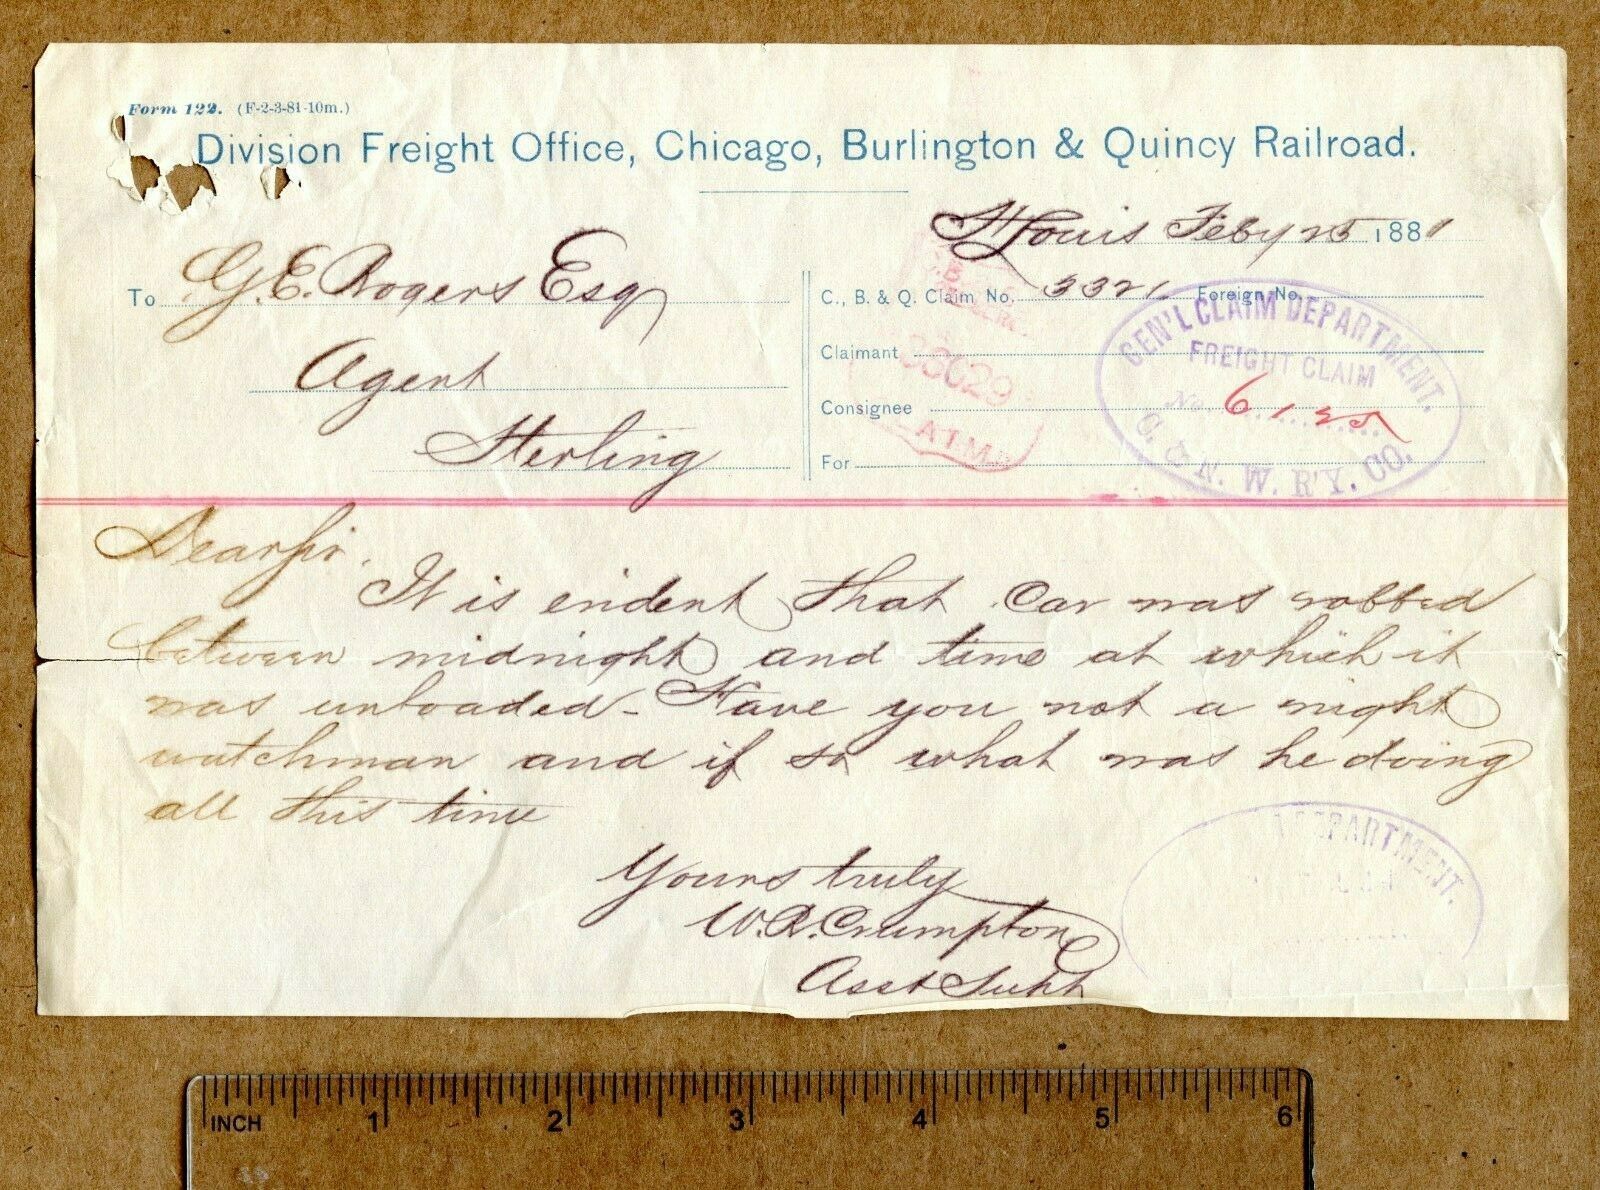 Form 122. (F-2-3-81-10m.)
Division Freight Office, Chicago, Burlington & Quincy Railroad.
St Louis Feby 25 1881
To G. E. Rogers Esq
Agent
Sterling
C., B. & Q. Claim No. 3321 Foreign No.
Claimant
Consignee
For
GEN'L CLAIM DEPARTMENT.
FREIGHT CLAIM
No. 6125
C. & N. W. R'Y. CO.
Dear Sir,
It is evident that Car was robbed
between midnight and time at which it
was unloaded - Have you not a night
watchman and if so what was he doing
all this time
Yours truly
W. R. Crumpton
Asst Supt
DEPARTMENT.
INCH 1 2 3 4 5 6